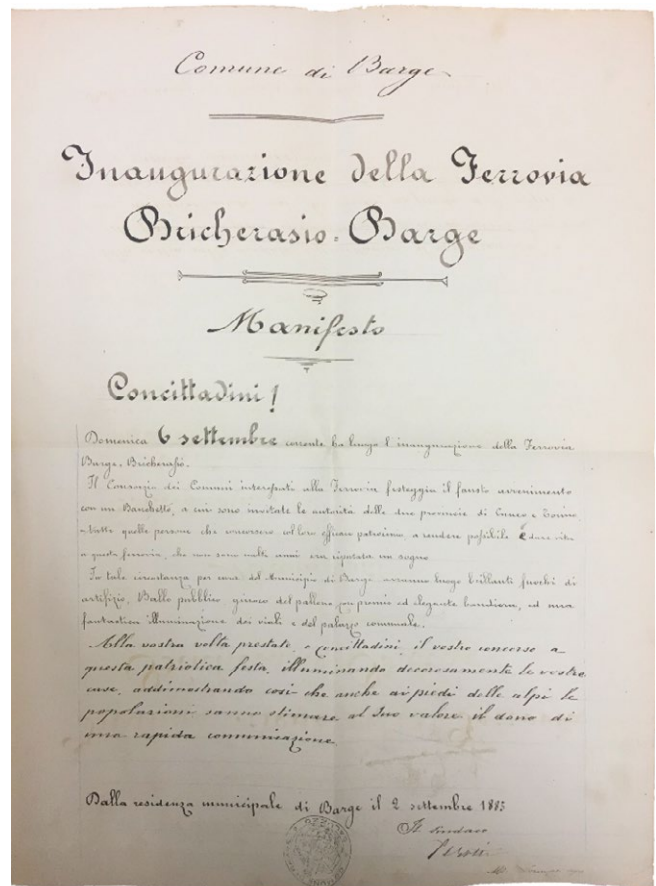 Comune di Barge
Inaugurazione della Ferrovia
Bricherasio-Barge
Manifesto
Concittadini!
Domenica 6 settembre corrente ha luogo l'inaugurazione della Ferrovia
Barge-Bricherasio.
Il Consorzio dei Comuni interessati alla Ferrovia festeggia il fausto avvenimento
con un Banchetto, a cui sono invitate le autorità delle due provincie di Cuneo e Torino,
e tutte quelle persone che concorsero col loro efficace patrocinio a rendere possibile e dare vita
a questa ferrovia, che non sono molti anni era riputata un sogno.
In tale circostanza per cura del Municipio di Barge avranno luogo brillanti fuochi di
artifizio, Ballo pubblico, giuoco del pallone con premio ed elegante bandiera, ed una
fantastica illuminazione dei viali e del palazzo comunale.
Alla vostra volta prestate, o concittadini, il vostro concorso a
questa patriotica festa, illuminando decorosamente le vostre
case, addimostrando così che anche ai piedi delle alpi le
popolazioni sanno stimare al suo valore il dono di
una rapida comunicazione.
Dalla residenza municipale di Barge il 2 settembre 1885
Il Sindaco